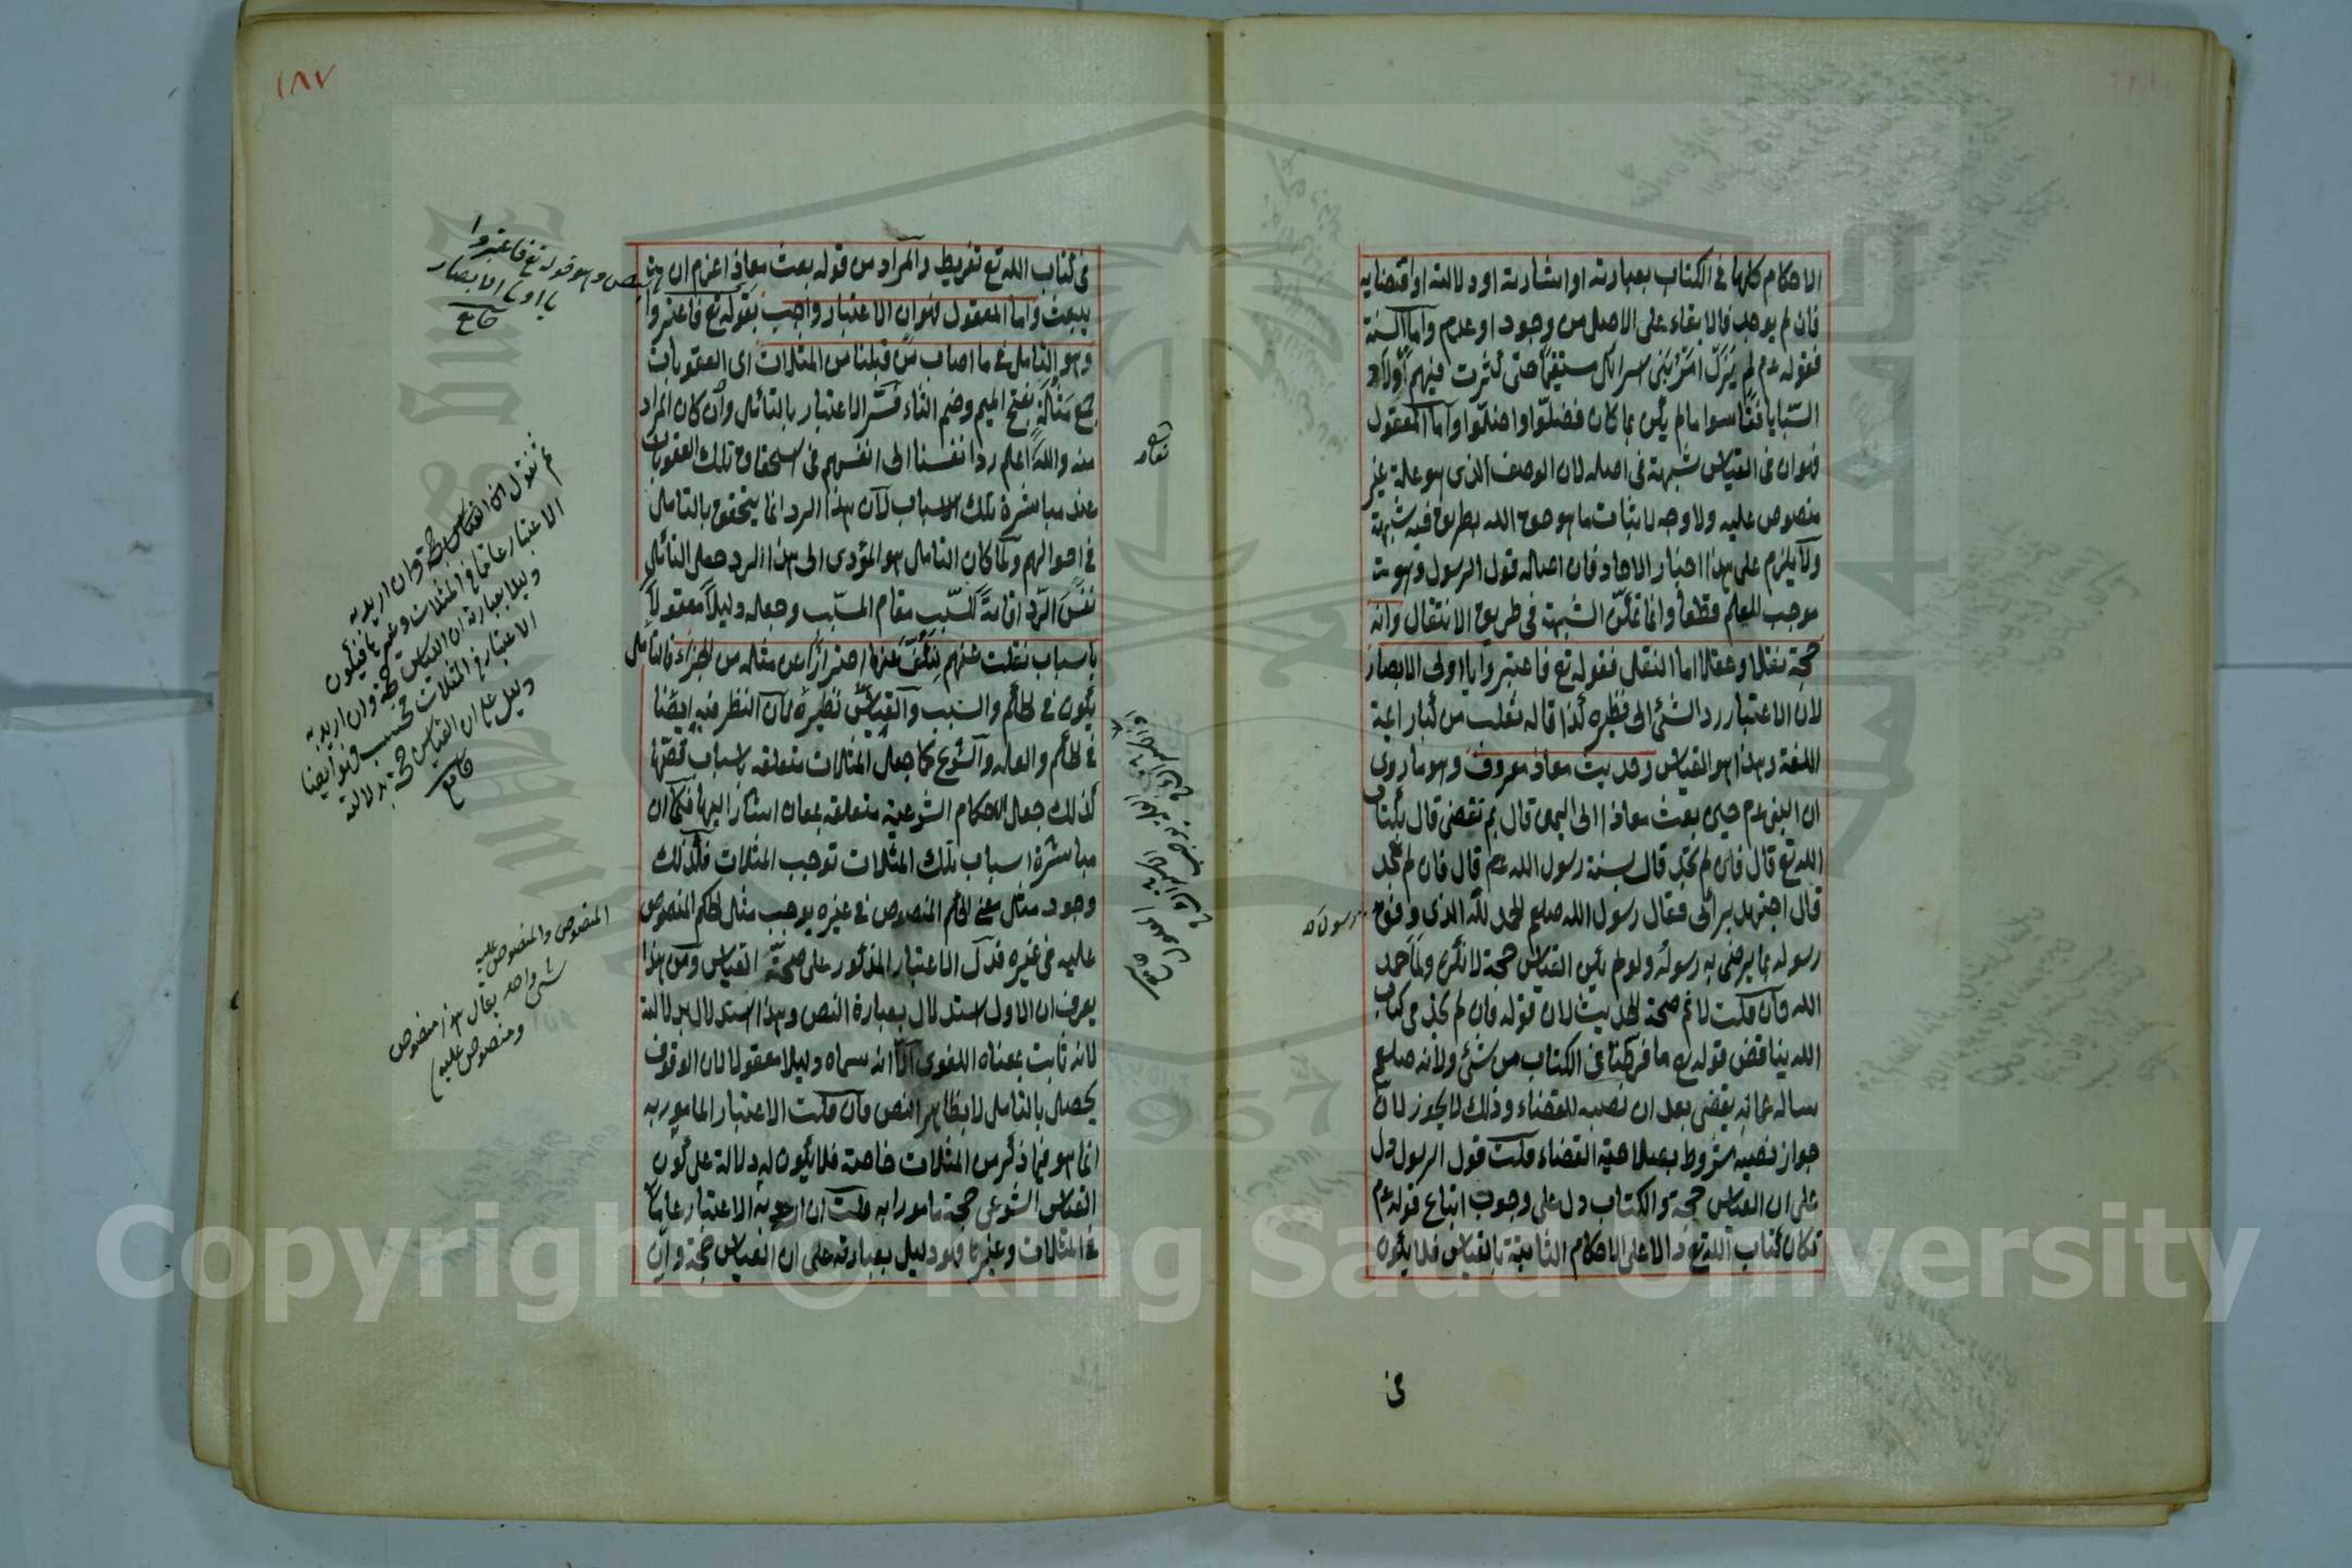 الاحكام كلها فى الكتاب بعبارته او اشارته او دلالته او اقتضايه
فان لم يوجد فالابقاء على الاصل من وجود او عدم واما السنة
فقوله عم لم يزل امر بنى اسرائل مستقيما حتى كثرت فيهم اولاد
السبايا فقاسوا ما لم يكن بما كان فضلوا واضلوا واما المعقول
فهو ان فى القياس شبهة فى اصله لان الوصف الذى هو علة غير
منصوص عليه ولا وجه لاثبات ما هو حق الله بطريق فيه شبهة
ولا يلزم على هذا اخبار الاحاد فان اصله قول الرسول وهو
موجب للعلم قطعا وانما تمكن الشبهة فى طريق الانتقال وانه
حجة نقلا وعقلا اما النقل فقوله تع فاعتبروا يا اولى الابصار
لان الاعتبار رد الشئ الى نظيره كذا قاله ثعلب من كبار ائمة
اللغة وهذا هو القياس وحديث معاذ معروف وهو ما روى
ان النبى عم حين بعث معاذا الى اليمن قال بم تقضى قال بكتاب
الله تع قال فان لم تجد قال بسنة رسول الله عم قال فان لم تجد
قال اجتهد برأئى فقال رسول الله صلعم الحمد لله الذى وفق
رسول
رسوله بما يرضى به رسوله ولو لم يكن القياس حجة لانكره ولما حمد
الله فان قلت لا نم صحة الحديث لان قوله فان لم تجد فى كتاب
الله يناقض قوله تع ما فرطنا فى الكتاب من شئ ولانه صلعم
ساله عما به يقضى بعد ان نصبه للقضاء وذلك لا يجوز لان
جواز نصبه مشروط بصلاحية القضاء قلت قول الرسول دل
على ان القياس حجة والكتاب دل على وجوب اتباع قوله عم
فكان كتاب الله تع دالا على الاحكام الثابتة بالقياس فلا يكون
فى
١٨٧
فى كتاب الله تع تفريط والمراد من قوله بعث معاذا عزم ان
يبعث واما المعقول فهو ان الاعتبار واجب بقوله تع فاعتبروا
وهو التامل فى ما اصاب من قبلنا من المثلات اى العقوبات
جمع مثلة بفتح الميم وضم الثاء فسر الاعتبار بالتامل وان كان المراد
منه والله اعلم رد انفسنا الى انفسهم فى استحقاق تلك العقوبات
عند مباشرة تلك الاسباب لان هذا الرد انما يتحقق بالتامل
فى احوالهم ولما كان التامل هو المؤدى الى هذا الرد جعل التامل
نفس الرد اقامة للسبب مقام المسبب وجعله دليلا معقولا
باسباب نقلت عنهم لنكف عنها احترازا عن مثله من الجزاء فالتامل
يكون فى الحكم والسبب والقياس نظيره لان النظر فيه ايضا
فى الحكم والعلة والشرع كما جعل المثلات متعلقة باسباب قصها
كذلك جعل الاحكام الشرعية متعلقة بمعان اشار اليها فكما ان
مباشرة اسباب تلك المثلات توجب المثلات فكذلك
وجود مثل معنى الحكم المنصوص فى غيره يوجب مثل الحكم المنصوص
عليه فى غيره فدل الاعتبار المذكور على صحة القياس ومن هذا
يعرف ان الاول استدلال بعبارة النص وهذا استدلال بدلالته
لانه ثابت بمعناه اللغوى الا انه سماه دليلا معقولا لان الوقوف
يحصل بالتامل لا بظاهر النص فان قلت الاعتبار المامور به
انما هو فيما ذكر من المثلات خاصة فلا يكون له دلالة على كون
القياس الشرعى حجة مامورا به قلت ان اريد به الاعتبار عاما
فى المثلات وغيرها فهو دليل بعبارته على ان القياس حجة وان
بنص وهو قوله تع فاعتبروا
يا اولى الابصار
ثم نقول ان القياس حجة وان اريد به
الاعتبار عاما فى المثلات وغيرها فيكون
دليلا بعبارته ان القياس حجة وان اريد به
الاعتبار فى المثلات فحسب فهو ايضا
دليل على ان القياس حجة بدلالته
المنصوص والمنصوص عليه
شئ واحد يقال هذا منصوص
ومنصوص عليه
Copyright © King Saud University
1957